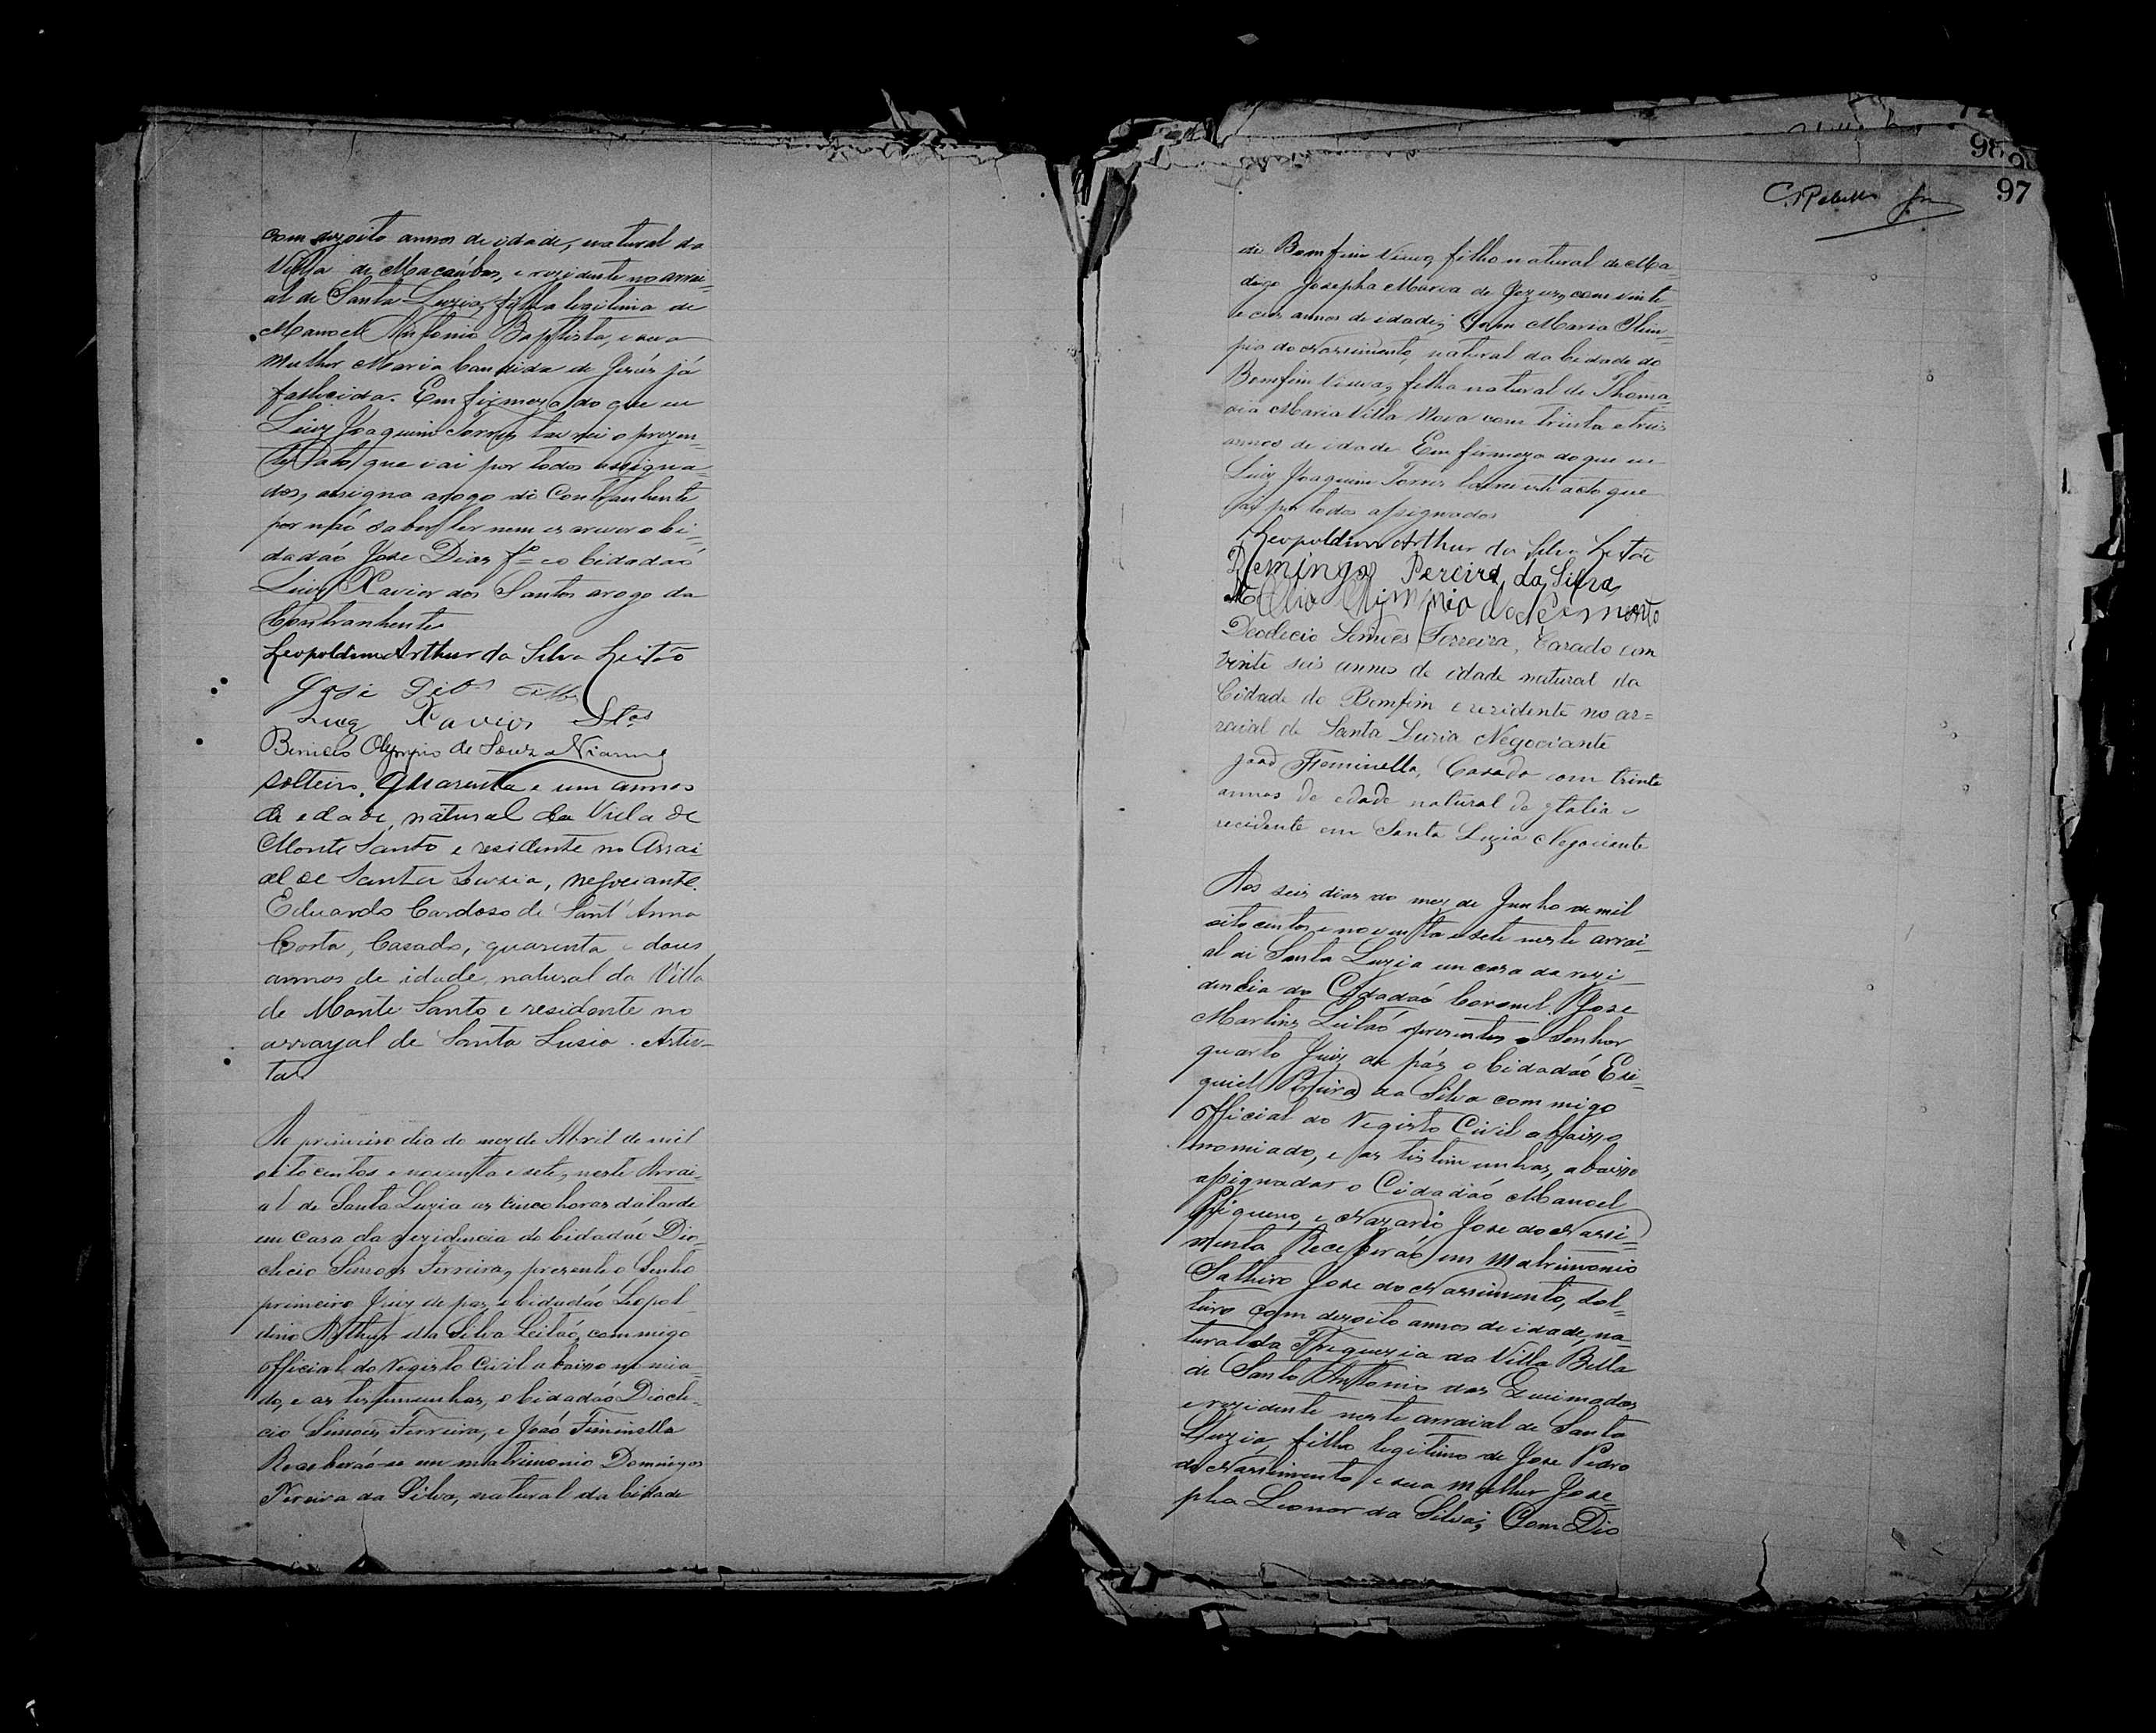 com dezoito annos de idade, natural da
Villa de Macaúbas, e rezidente no arrai-
al de Santa Luzia, filha legitima de
Manoel Antonio Baptista, e sua
mulher Maria Candida de Jesús já
fallicida. Em firmeza do que eu
Luiz Joaquim Torres lavrei o prezen-
te acto que vai por todos assigna-
dos, assigna arogo do Contrahente
por não saber ler nem escrever o Ci-
dadaó Jose Dias fº e o Cidadaó
Luiz Xavier dos Santos arogo da
Contrahente
Leopoldino Arthur da Silva Leitão
José Dias
Luiz Xavier Stos
Olympio de Souza Vianna
solteiro, quarenta e um annos
de edade, natural da Villa de
Monte Santo e residente no Arrai-
al de Santa Luzia, negociante.
Eduardo Cardoso de Sant'Anna
Costa, Casado, quarenta e dous
annos de idade, natural da Villa
de Monte Santo e residente no
arrayal de Santa Lusia. Artis-
ta.
Ao primeiro dia do mez de Abril de mil
oitocentos e noventa e sete, neste Arrai-
al de Santa Luzia as cinco horas da tarde
em Casa da rezidencia do Cidadaó Dio-
clecio Simoes Ferreira, presente o Senho
primeiro Juiz de paz, o Cidadaó Leopol-
dino Arthur da Silva Leitaó, com migo
official do Registo Civil abaixo nomia-
do, e as testemunhas, o Cidadaó Diocle-
cio Simoes Ferreira, e Joaó Fiminella
Receberaó-se em matrimonio Domingos
Pereira da Silva, natural da Cidade
C. Rebello Jnr
97
98
de Bomfim viuvo, filho natural de Ma-
Josepha Maria de Jezus, com vinte
e annos de idade; Com Maria Olim-
pia do Nassimento, natural da Cidade do
Bomfim viuva, filha natural de Thoma-
zia Maria Villa Nova com trinta e treis
annos de idade Em firmeza do que eu
Luiz Joaquim Torres lavrei este acto que
vai por todos assignados
Leopoldino Arthur da Silva Leitão
Domingos Pereira da Silva
Deoclecio Simões Ferreira, Casado com
vinte seis annos de idade natural da
Cidade do Bomfim e rezidente no ar-
raial de Santa Luzia Negociante
João Feminella, Casado com trinta
annos de edade natural de Italia e
recidente em Santa Luzia Negociante
Aos seis dias do mez de Junho de mil
oito centos e noventa e sete neste arrai-
al de Santa Luzia em caza da rezi-
dencia do Cidadaó Coronel Jose
Martins Leitaó prezentes o Senhor
quarto Juiz de páz o Cidadaó Ezi-
quiel Pereira da Silva com migo
Official do Registo Civil abaixo
nomiado, e as tistimunhas, abaixo
assignadas o Cidadaó Manoel
e Nazario Jose do Nassi-
mento Receberaó em matrimonio
Jose do Nassimento, sol-
teiro com dezoito annos de idade, na-
tural da Freguezia da Villa Bella
de Santo Antonio das Queimadas
e rezidente neste arraial de Santa
Luzia, filho legitimo de Jose Pedro
do Nassimento, e sua mulher Jose-
pha Leonor da Silva; Com Dio